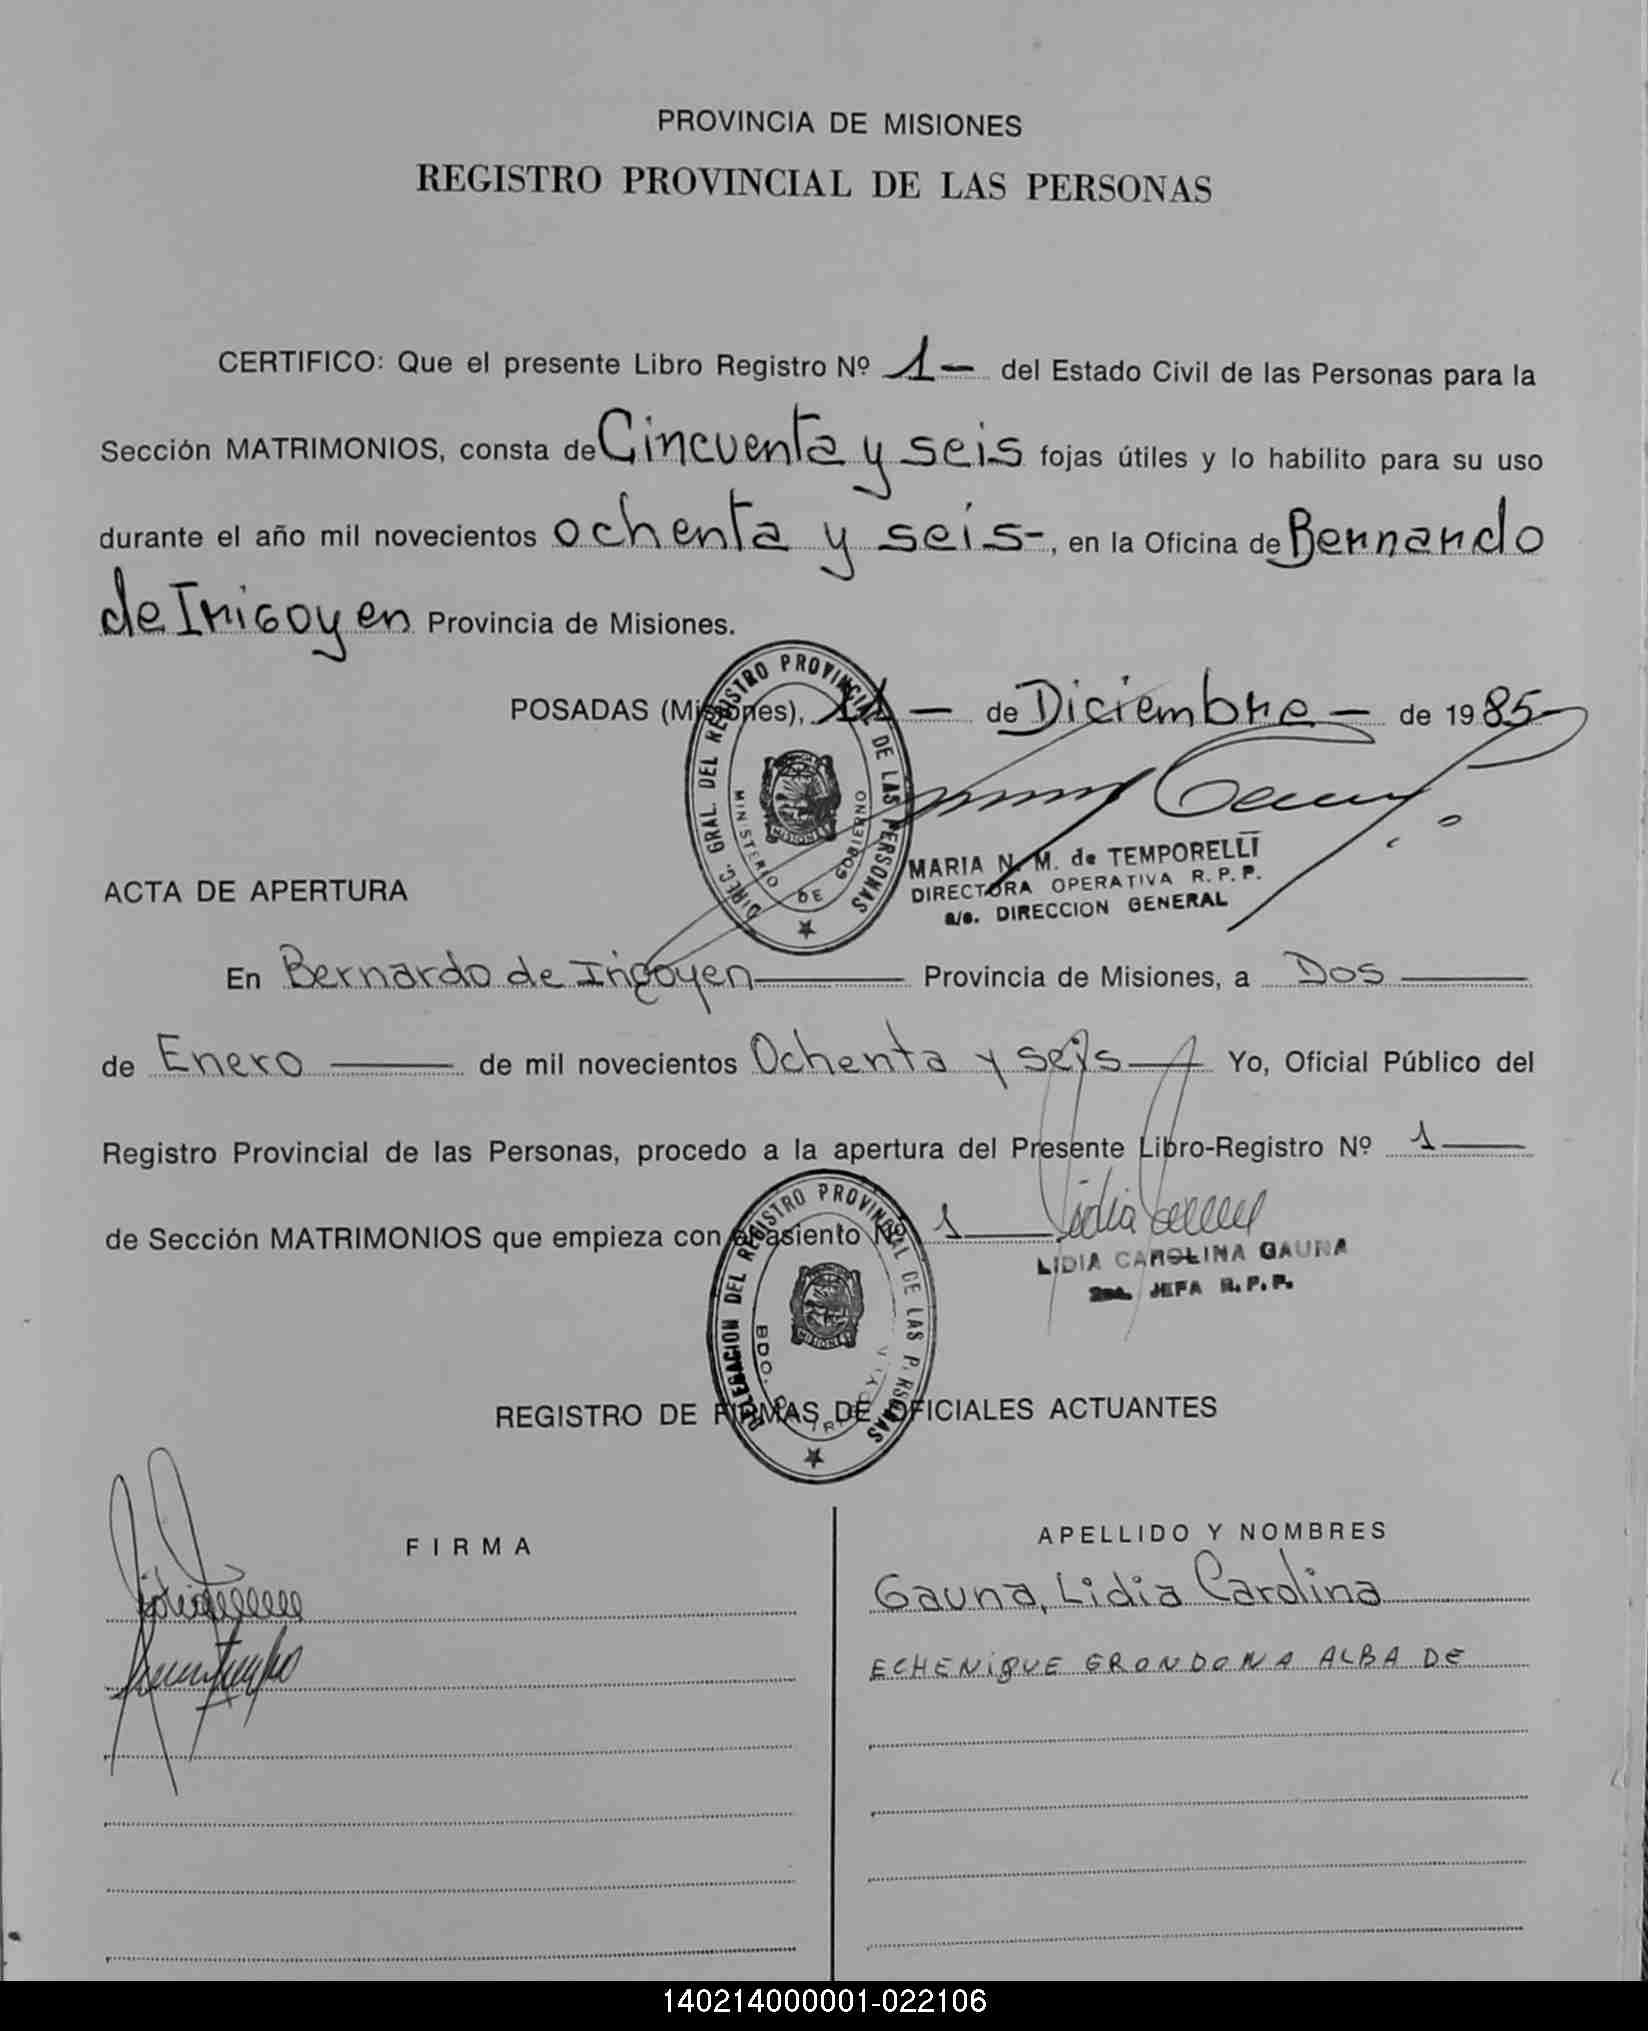 PROVINCIA DE MISIONES
REGISTRO PROVINCIAL DE LAS PERSONAS
CERTIFICO: Que el presente Libro Registro Nº 1— del Estado Civil de las Personas para la
Sección MATRIMONIOS, consta de Cincuenta y seis fojas útiles y lo habilito para su uso
durante el año mil novecientos ochenta y seis-, en la Oficina de Bernardo
de Irigoyen Provincia de Misiones.
POSADAS (Misiones), — de Diciembre — de 1985-
DIREC. GRAL. DEL REGISTRO PROVINCIAL DE LAS PERSONAS
MINISTERIO DE GOBIERNO
MISIONES
MARIA N. M. de TEMPORELLI
DIRECTORA OPERATIVA R. P. P.
a/c. DIRECCION GENERAL
ACTA DE APERTURA
En Bernardo de Irigoyen — Provincia de Misiones, a Dos —
de Enero — de mil novecientos Ochenta y seis — Yo, Oficial Público del
Registro Provincial de las Personas, procedo a la apertura del Presente Libro-Registro Nº 1—
de Sección MATRIMONIOS que empieza con el asiento Nº 1—
LIDIA CAROLINA GAUNA
JEFA R. P. P.
DELEGACION DEL REGISTRO PROVINCIAL DE LAS PERSONAS
BDO. DE IRIGOYEN
MISIONES
REGISTRO DE FIRMAS DE OFICIALES ACTUANTES
FIRMA
APELLIDO Y NOMBRES
Gauna, Lidia Carolina
ECHENIQUE GRONDONA ALBA DE
140214000001-022106